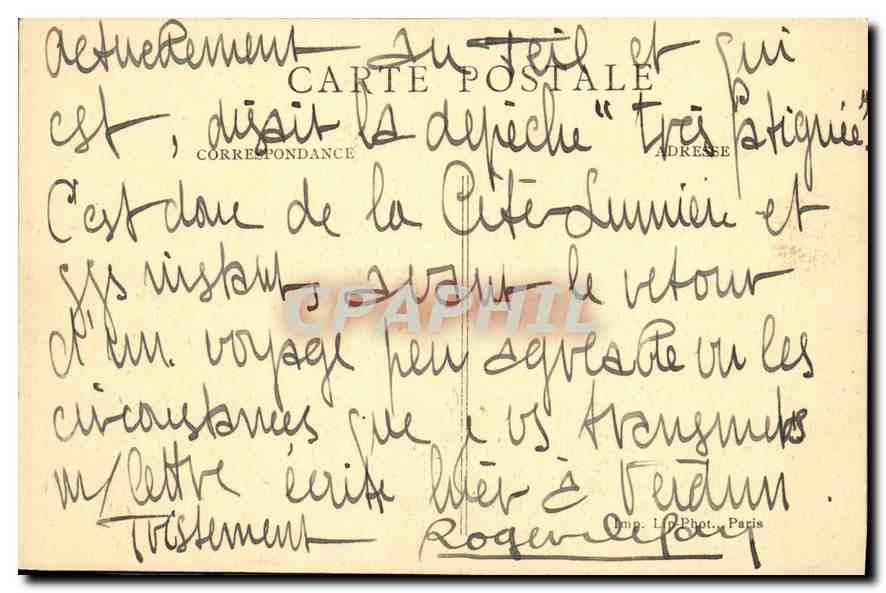 actuellement au Teil et qui
CARTE POSTALE
est, disait la dépêche "très fatiguée".
CORRESPONDANCE ADRESSE
C'est donc de la Cité-Lumière et
qqs instants avant le retour
CPAPHIL
d'un voyage peu agréable vu les
circonstances que je vs transmets
m/ lettre écrite hier à Verdun.
Imp. Lip-Phot., Paris
Tristement Roger